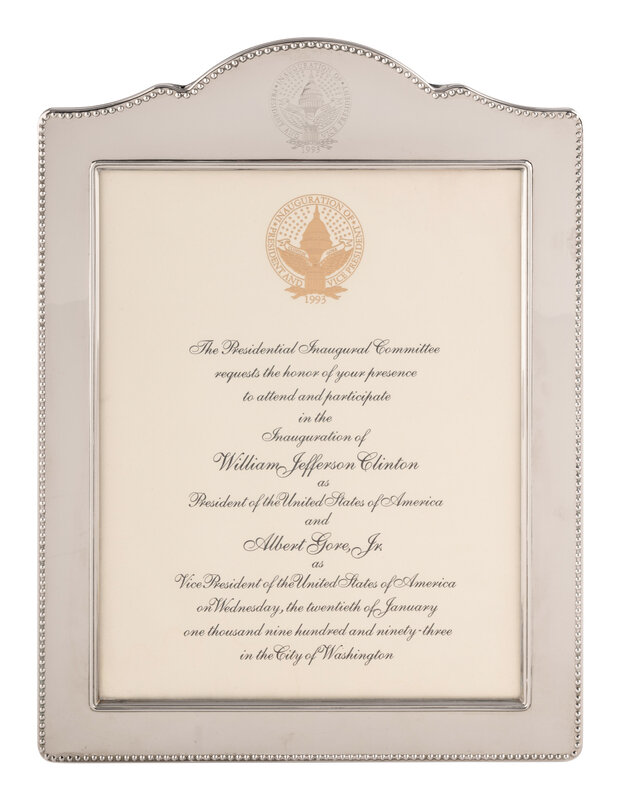 INAUGURATION OF
PRESIDENT AND VICE PRESIDENT
1993
INAUGURATION OF
PRESIDENT AND VICE PRESIDENT
1993
The Presidential Inaugural Committee
requests the honor of your presence
to attend and participate
in the
Inauguration of
William Jefferson Clinton
as
President of the United States of America
and
Albert Gore, Jr.
as
Vice President of the United States of America
on Wednesday, the twentieth of January
one thousand nine hundred and ninety-three
in the City of Washington